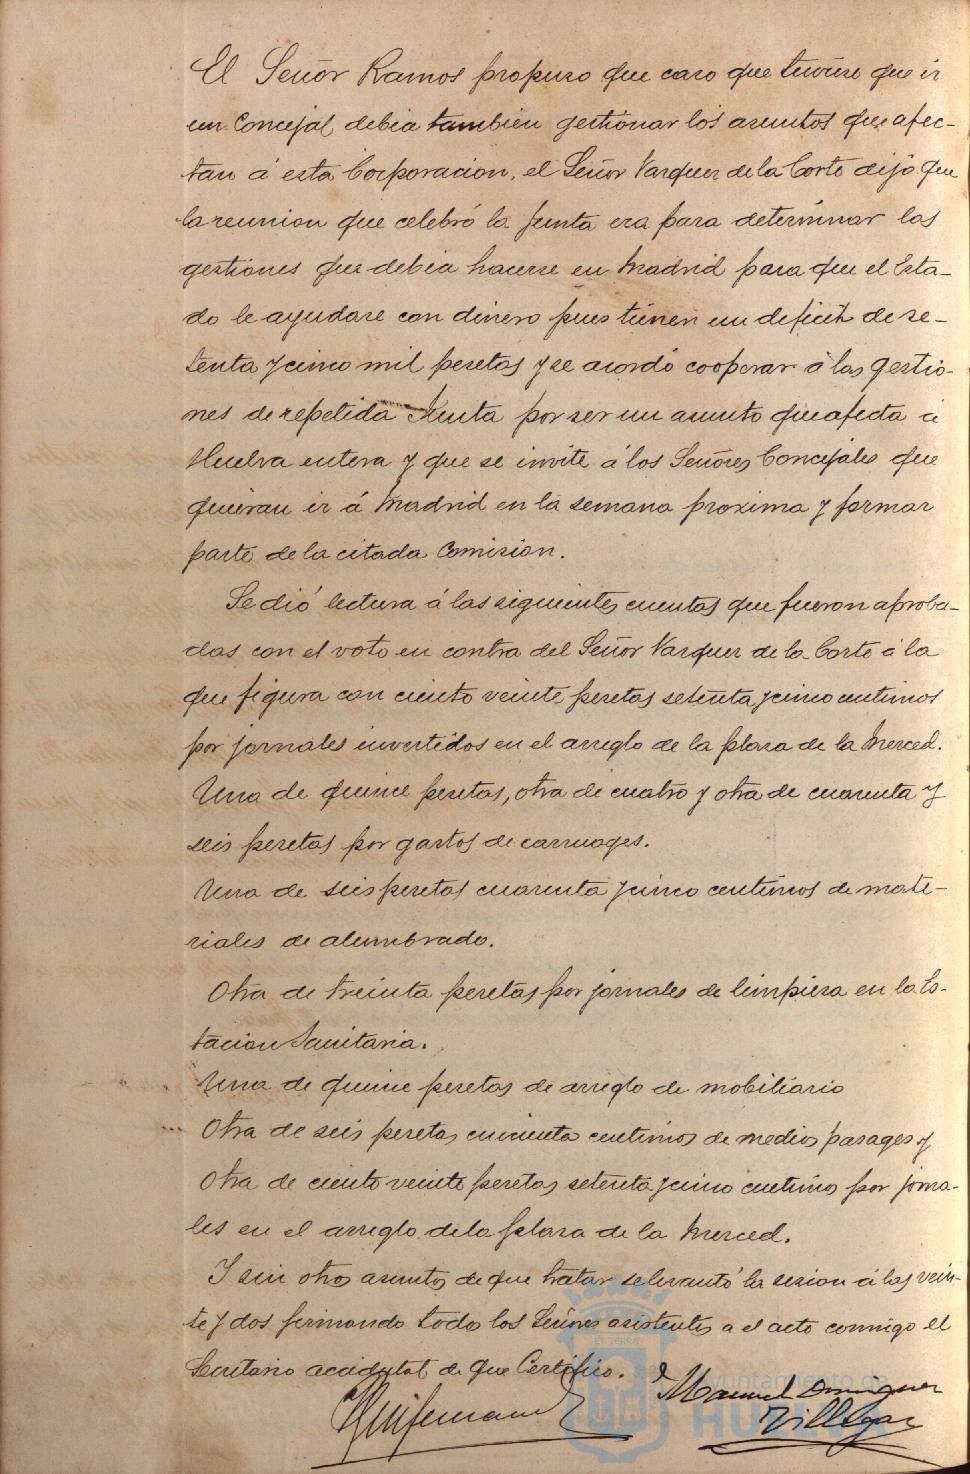 El Señor Ramos propuso que caso que tuviese que ir
un Concejal debia tambien gestionar los asuntos que afec-
tan á esta Corporacion, el Señor Vazquez de la Corte dijo que
la reunion que celebró la Junta era para determinar las
gestiones que debia hacerse en Madrid para que el Esta-
do le ayudase con dinero pues tienen un deficit de se-
tenta y cinco mil pesetas y se acordó cooperar á las gestio-
nes de repetida Junta por ser un asunto que afecta á
Huelva entera y que se invite á los Señores Concejales que
quieran ir á Madrid en la semana proxima y formar
parte de la citada Comision.
Se dió lectura á las siguientes cuentas que fueron aproba-
das con el voto en contra del Señor Vazquez de la Corte á la
que figura con ciento veinte pesetas setenta y cinco centimos
por jornales invertidos en el arreglo de la plaza de la Merced.
Una de quince pesetas, otra de cuatro y otra de cuarenta y
seis pesetas por gastos de carruages.
Una de seis pesetas cuarenta y cinco centimos de mate-
riales de alumbrado.
Otra de treinta pesetas por jornales de limpieza en la Es-
tacion Sanitaria.
Una de quince pesetas de arreglo de mobiliario
Otra de seis pesetas cincuenta centimos de medios pasages y
Otra de ciento veinte pesetas setenta y cinco centimos por jorna-
les en el arreglo de la plaza de la Merced.
Y sin otros asuntos de que tratar se levantó la sesion á las vein-
te y dos firmando todo los Señores asistentes a el acto conmigo el
Secretario accidental de que Certifico.
Manuel Dominguez
Villegas
Ayuntamiento de
HUELVA